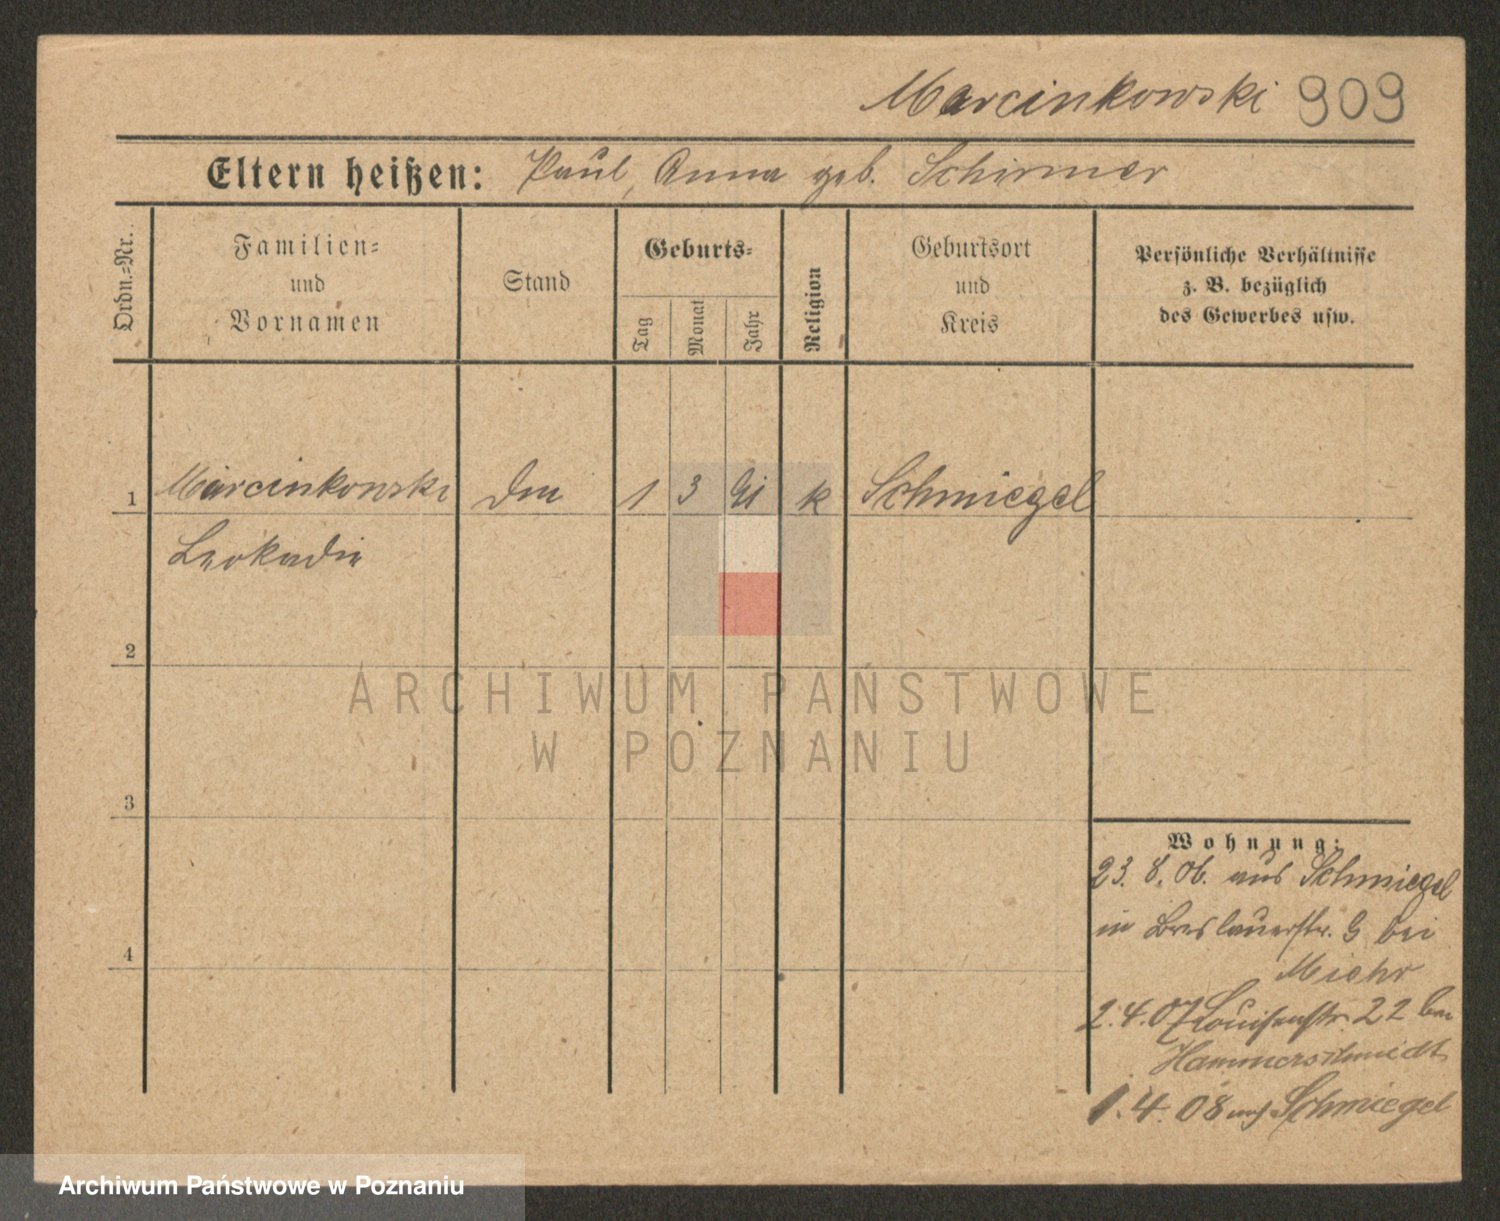 Marcinkowski 909
Eltern heißen: Paul, Anna geb. Schirmer
Ordn.=Nr.
Familien=
und
Vornamen
Stand
Geburts=
Tag
Monat
Jahr
Religion
Geburtsort
und
Kreis
Persönliche Verhältnisse
z. B. bezüglich
des Gewerbes usw.
1 Marcinkowski 1 3 91 k Schmiegel
Leokadie
2
3
4
Wohnung:
23. 8. 06. aus Schmiegel
in Breslauerstr. 9 bei
2. 4. 07 Louisenstr. 22 bei
Hammerschmidt
1. 4. 08 nach Schmiegel
ARCHIWUM PAŃSTWOWE
W POZNANIU
Archiwum Państwowe w Poznaniu